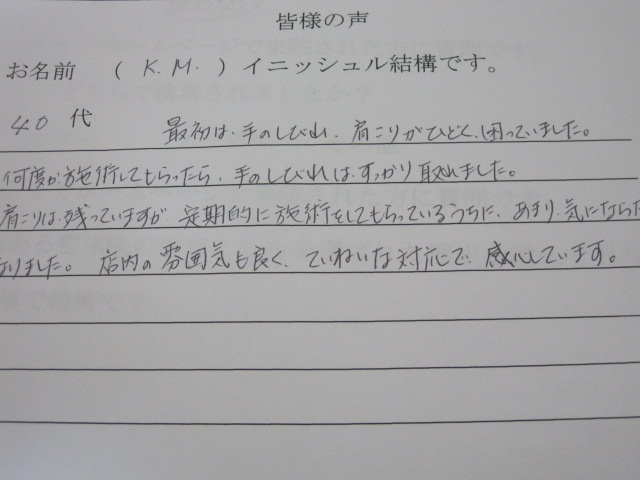 皆様の声
お名前 （ K.M. ）イニッシュル結構です。
40 代 最初は、手のしびれ、肩こりがひどく、困っていました。
何度か施術してもらったら、手のしびれは、すっかり取れました。
肩こりは残っていますが 定期的に施術をしてもらっているうちに、あまり、気にならな
なりました。店内の雰囲気も良く、ていねいな対応で、感心しています。